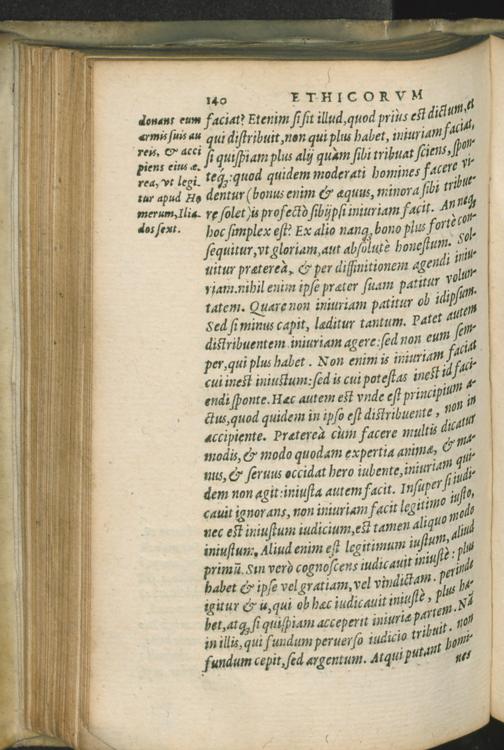 140 ETHICORVM
donans eum
armis suis au
reis, & acci
piens eius æ-
rea, vt legi
tur apud Ho
merum, Ilia-
dos sext.
faciat? Etenim si sit illud, quod priùs est dictum, et
qui distribuit, non qui plus habet, iniuriam faciat,
si quispiam plus alij quàm sibi tribuat sciens, spon-
teq́;: quod quidem moderati homines facere vi-
dentur (bonus enim & æquus, minora sibi tribue-
re solet) is profectò sibijpsi iniuriam facit. An neq;
hoc simplex est? Ex alio nanq; bono plus fortè con-
sequitur, vt gloriam, aut absolutè honestum. Sol-
uitur præterea, & per diffinitionem agendi iniu-
riam. nihil enim ipse præter suam patitur volun-
tatem. Quare non iniuriam patitur ob idipsum.
Sed si minus capit, læditur tantum. Patet autem
distribuentem iniuriam agere: sed non eum sem-
per, qui plus habet. Non enim is iniuriam faciat
cui inest iniustum: sed is cui potestas inest id faci-
endi sponte. Hæc autem est vnde est principium a-
ctus, quod quidem in ipso est distribuente, non in
accipiente. Prætereà cùm facere multis dicatur
modis, & modo quodam expertia animæ, & ma-
nus, & seruus occidat hero iubente, iniuriam qui-
dem non agit: iniusta autem facit. Insuper si iudi-
cauit ignorans, non iniuriam facit legitimo iusto,
nec est iniustum iudicium, est tamen aliquo modo
iniustum. Aliud enim est legitimum iustum, aliud
primũ. Sin verò cognoscens iudicauit iniustè: plus
habet & ipse vel gratiam, vel vindictam. perinde
igitur & is, qui ob hæc iudicauit iniustè, plus ha-
bet, atq; si quispiam acceperit iniuriæ partem. Nã
in illis, qui fundum peruerso iudicio tribuit, non
fundum cepit, sed argentum. Atqui putant homi-
nes